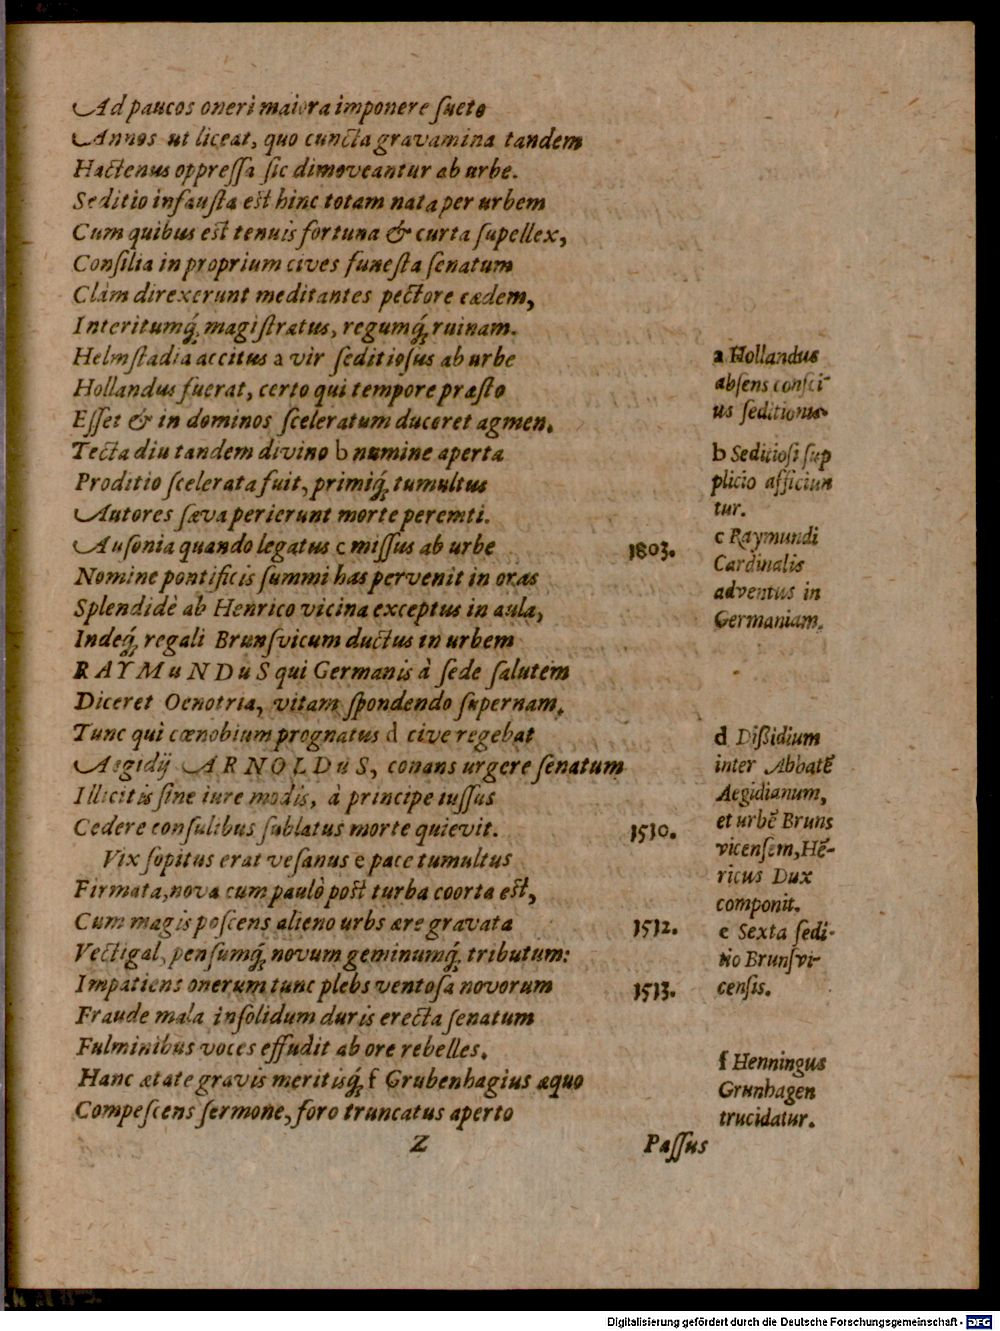 Ad paucos oneri maiora imponere sueto
Annos ut liceat, quo cuncta gravamina tandem
Hactenus oppressa sic dimoveantur ab urbe.
Seditio infausta est hinc totam nata per urbem
Cum quibus est tenuis fortuna & curta supellex,
Consilia in proprium cives funesta senatum
Clàm direxerunt meditantes pectore cædem,
Interitumq́; magistratus, regumq́; ruinam.
Helmstadia accitus a vir seditiosus ab urbe
Hollandus fuerat, certo qui tempore præsto
Esset & in dominos sceleratum duceret agmen.
Tecta diu tandem divino b numine aperta
Proditio scelerata fuit, primiq́; tumultus
Autores sæva perierunt morte peremti.
Ausonia quando legatus c missus ab urbe
Nomine pontificis summi has pervenit in oras
Splendidè ab Henrico vicina exceptus in aula,
Indeq́; regali Brunsvicum ductus in urbem
RAYMuNDuS qui Germanis à sede salutem
Diceret Oenotria, vitam spondendo supernam.
Tunc qui cœnobium prognatus d cive regebat
Aegidij ARNOLDuS, conans urgere senatum
Illicitis sine iure modis, à principe iussus
Cedere consulibus sublatus morte quievit.
Vix sopitus erat vesanus e pace tumultus
Firmata, nova cum paulò pòst turba coorta est,
Cum magis poscens alieno urbs ære gravata
Vectigal, pensumq́; novum geminumq́; tributum:
Impatiens onerum tunc plebs ventosa novorum
Fraude mala insolidum duris erecta senatum
Fulminibus voces effudit ab ore rebelles.
Hanc ætate gravis meritisq́; f Grubenhagius æquo
Compescens sermone, foro truncatus aperto
Z
Passus
a Hollandus
absens consci-
us seditionis.
b Seditiosi sup
plicio afficiun
tur.
1803.
c Raymundi
Cardinalis
adventus in
Germaniam.
d Dißidium
inter Abbatē
Aegidianum,
et urbē Bruns
vicensem, Hē-
ricus Dux
componit.
1510.
1512.
e Sexta sedi-
tio Brunsvi-
censis.
1513.
f Henningus
Grunhagen
trucidatur.
Digitalisierung gefördert durch die Deutsche Forschungsgemeinschaft - DFG